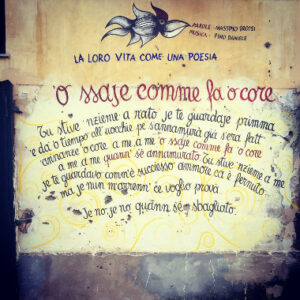 PAROLE - MASSIMO TROISI
MUSICA - PINO DANIELE
LA LORO VITA COME UNA POESIA
'O ssaje comme fa 'o core
Tu stive 'nzieme a nato je te guardaje primma
e da 'o tiempo all' uocchie pe s'annammurà già s'era fatt
annanze 'o core a me a me 'o ssaje comme fa 'o core
a me a me quann' s'è annamurato tu stive 'nzieme a me
je te guardavo comm'è successo ammore ca è fernuto
ma je nun m'arrenn' ce voglio pruvà
Je no, je no quann s'è sbagliato.